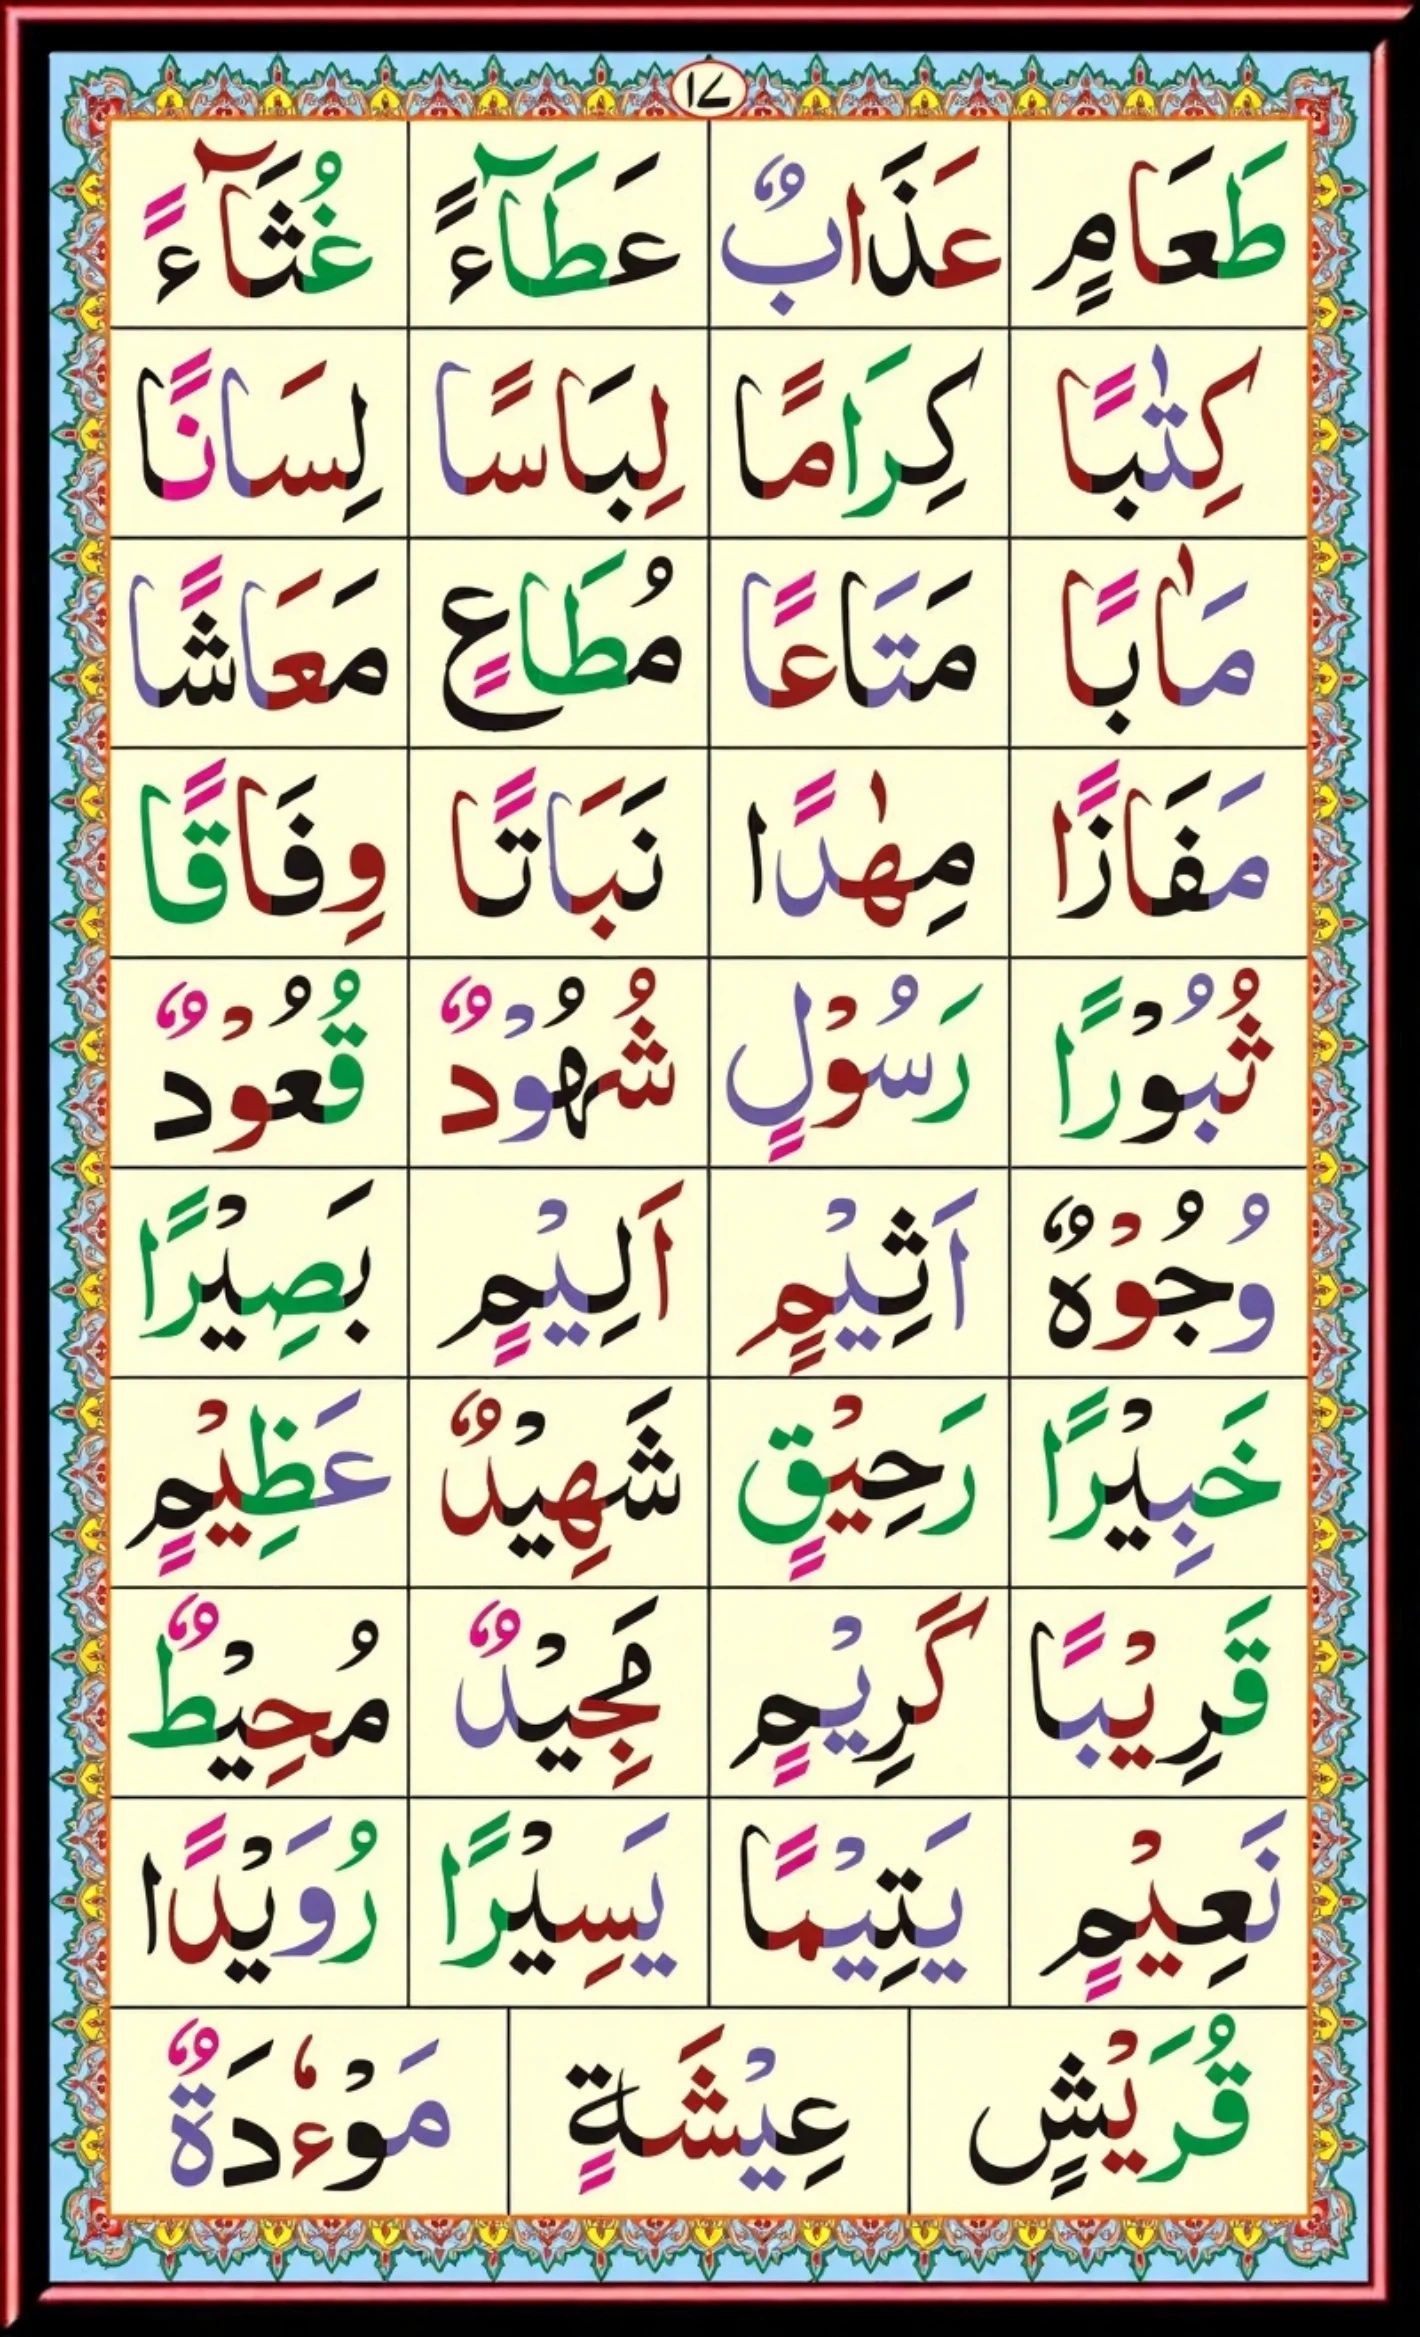 ١٧
طَعَامٍ عَذَابٌ عَطَآءً غُثَآءً
كِتٰبًا كِرَامًا لِبَاسًا لِسَانًا
مَاٰبًا مَتَاعًا مُطَاعٍ مَعَاشًا
مَفَازًا مِهٰدًا نَبَاتًا وِفَاقًا
ثُبُوْرًا رَسُوْلٍ شُهُوْدٌ قُعُوْدٌ
وُجُوْهٌ اَثِيْمٍ اَلِيْمٍ بَصِيْرًا
خَبِيْرًا رَحِيْقٍ شَهِيْدٌ عَظِيْمٍ
قَرِيْبًا كَرِيْمٍ مَجِيْدٌ مُحِيْطٌ
نَعِيْمٍ يَتِيْمًا يَسِيْرًا رُوَيْدًا
قُرَيْشٍ عِيْشَةٍ مَوْءٗدَةٌ